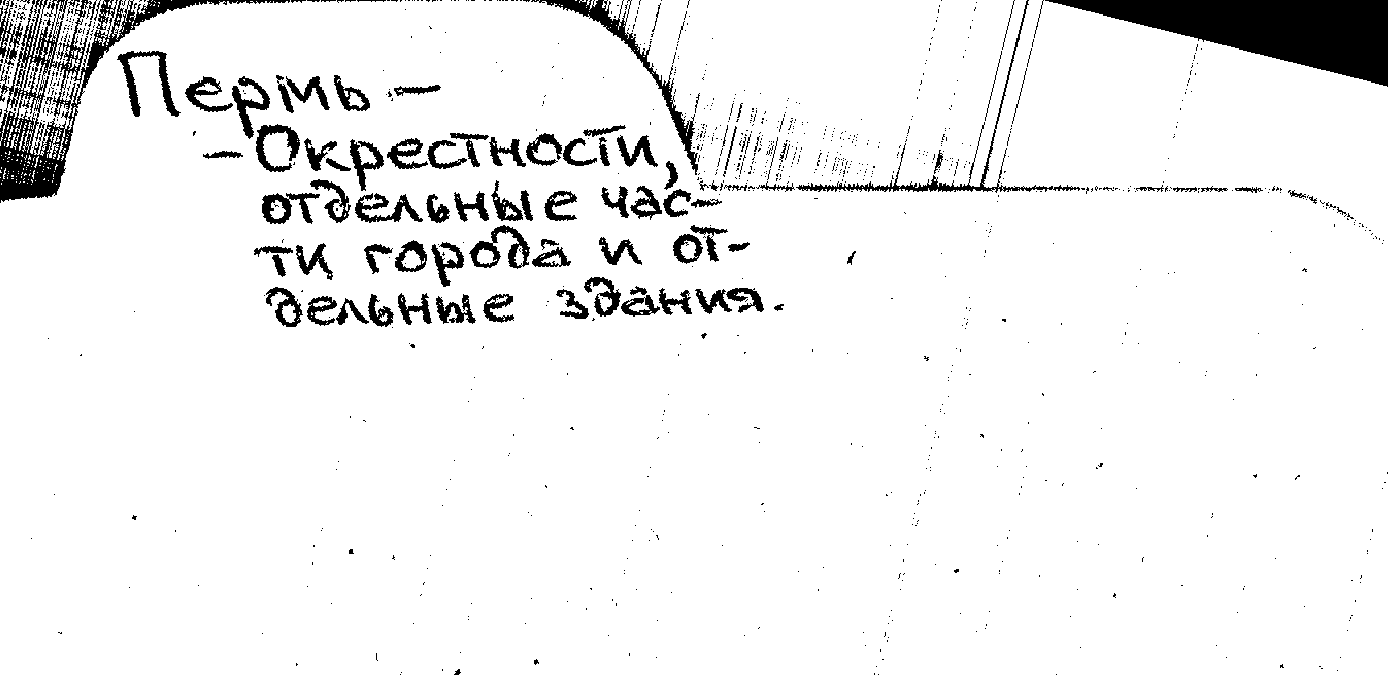 Пермь –
– Окрестности,
отдельные час-
ти города и от-
дельные здания.